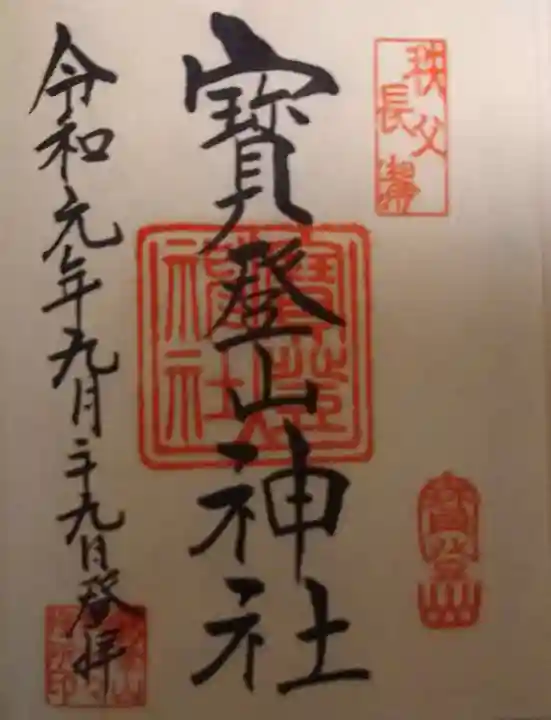 秩父
長瀞
寳登山
寳登山神社
令和元年九月二十九日登拝